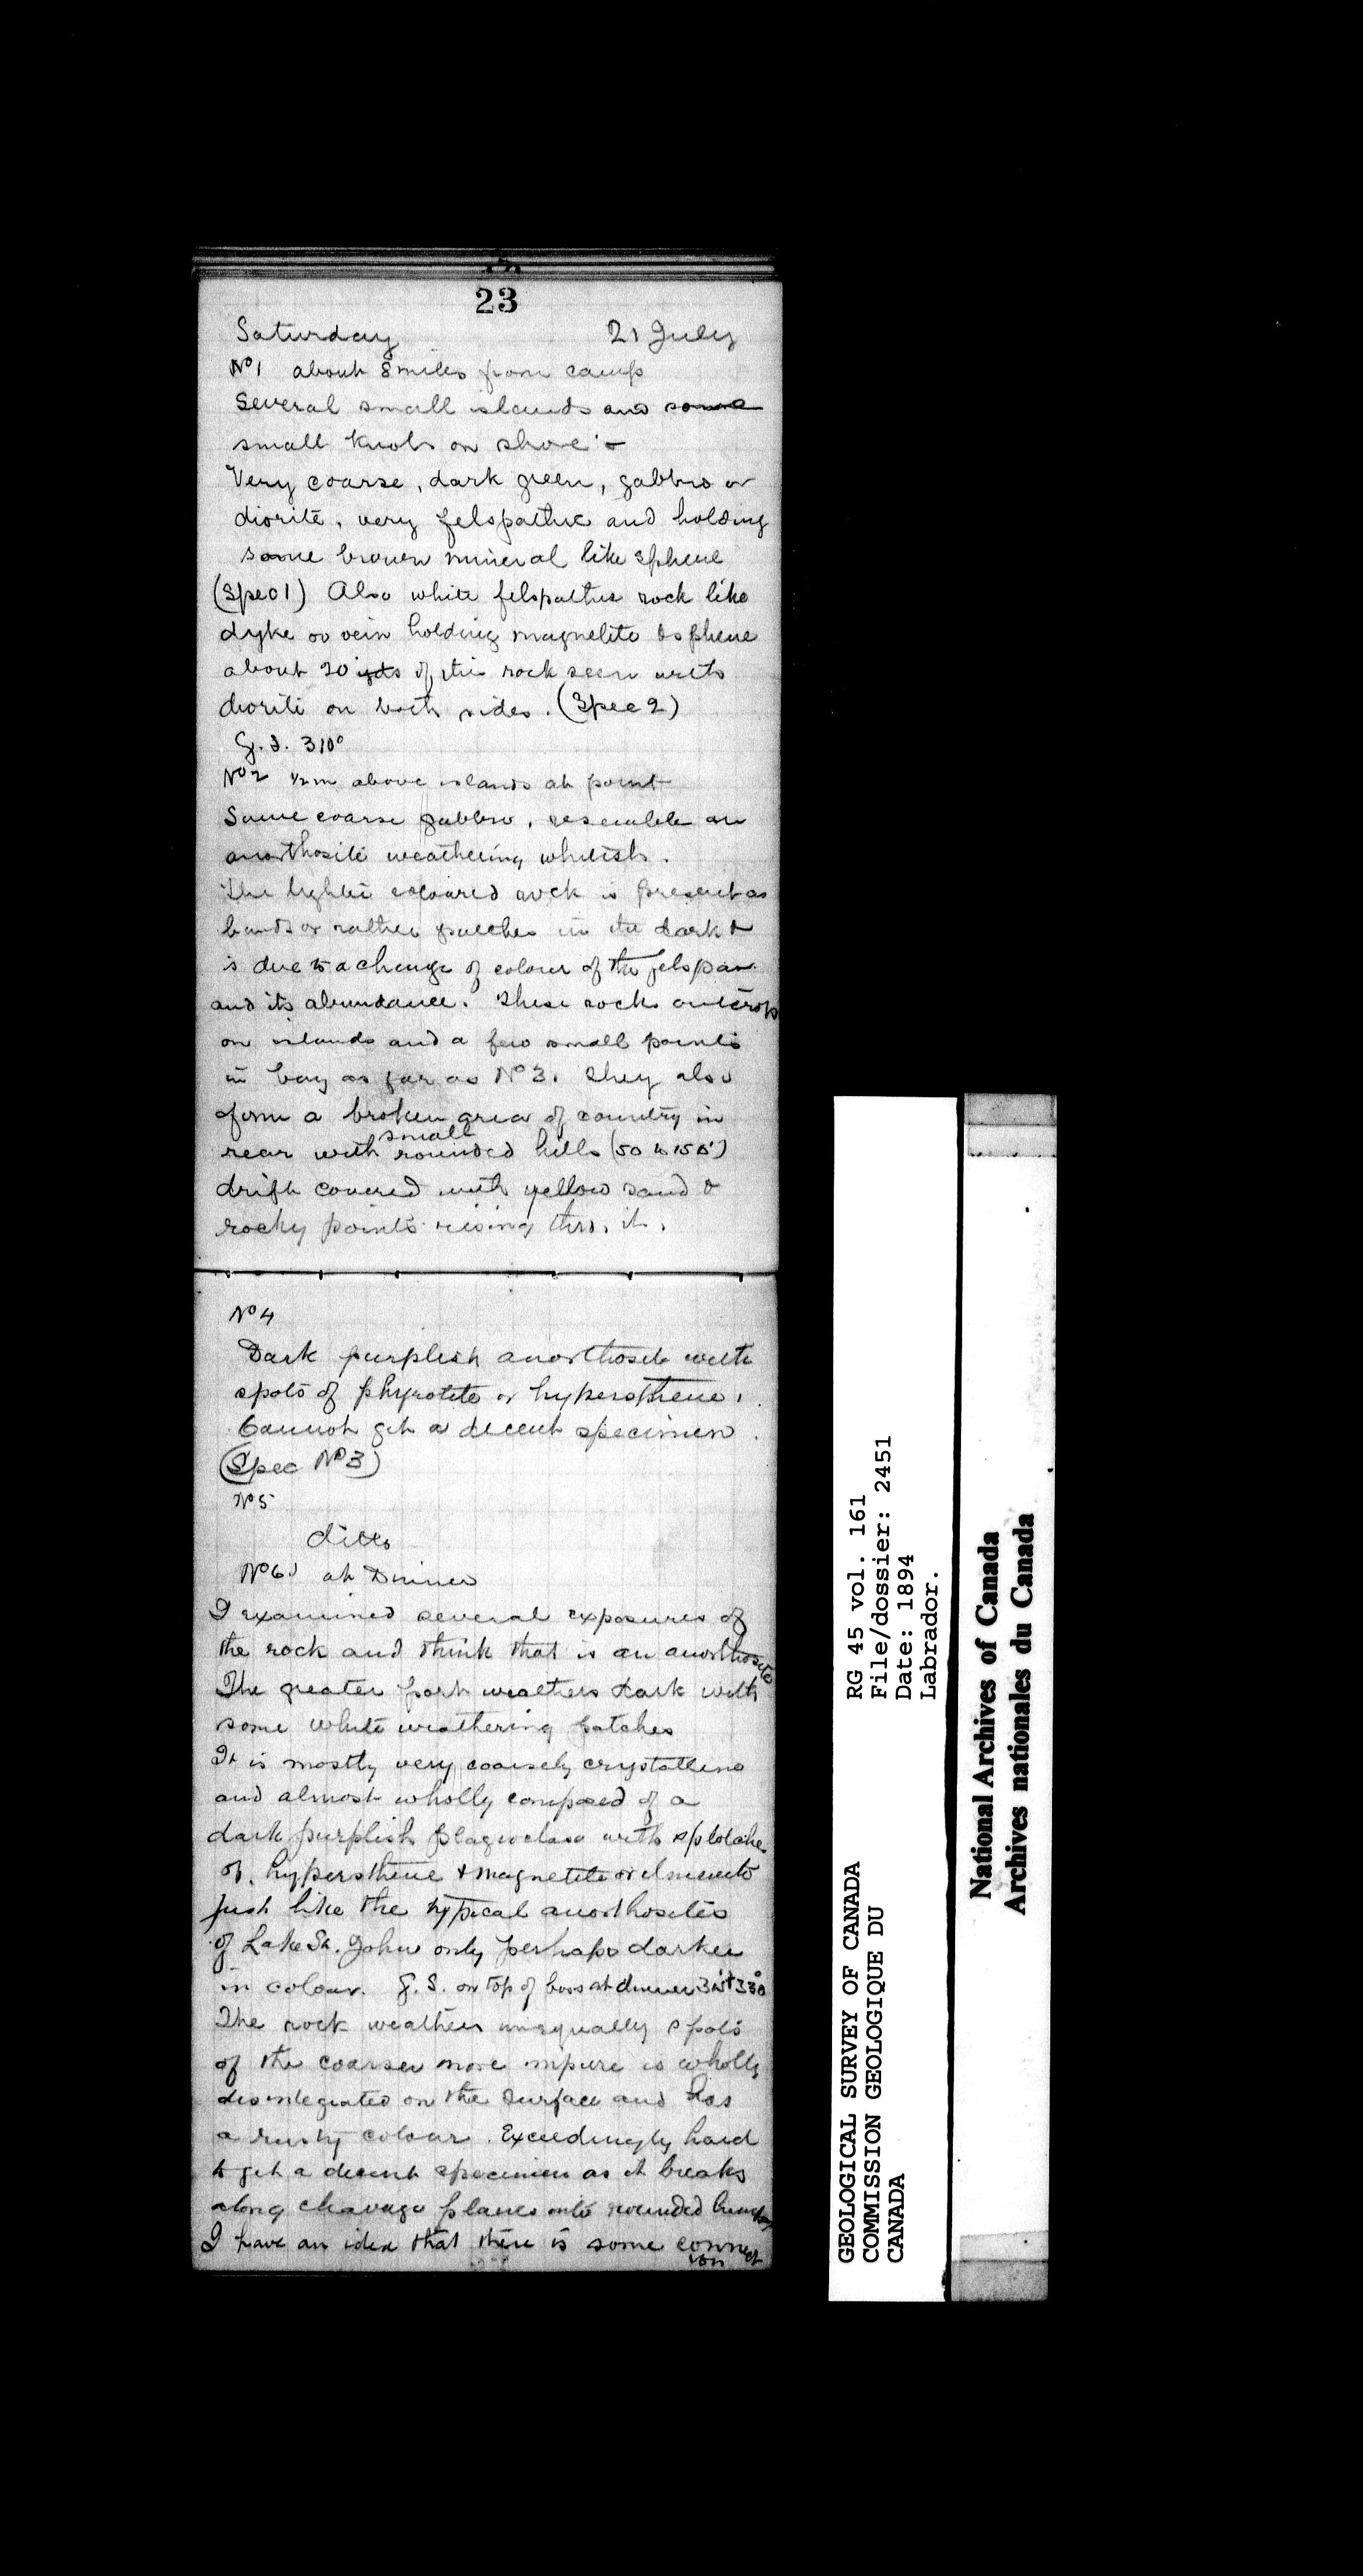 23
Saturday 21 July
No 1 about 8 miles from camp
Several small islands and some
small knobs on shore :-
Very coarse, dark green, gabbro or
diorite, very felspathic and holding
some brown mineral like sphene
(Spec 1) Also white felspathic rock like
dyke or vein holding magnetite & sphene
about 20 yds of this rock seen with
diorite on both sides. (Spec 2)
G. S. 310°
No 2 ½ m above islands at point
Same coarse gabbro, resemble an
anorthosite weathering whitish.
The lighter coloured rock is present as
bands or rather patches in the dark &
is due to a change of colour of the felspar
and its abundance. These rocks outcrop
on islands and a few small points
in bay as far as No 3. They also
form a broken area of country in
rear with small rounded hills (50 to 150')
drift covered with yellow sand &
rocky points rising thro. it.
No 4
Dark purplish anorthosite with
spots of phyrotite or hypersthene,
Cannot get a decent specimen.
(Spec No 3)
No 5
ditto
No 6 at Dinner
I examined several exposures of
the rock and think that is an anorthosite
The greater part weathers dark with
some white weathering patches
It is mostly very coarsely crystalline
and almost wholly composed of a
dark purplish plagioclase with splotches
of hypersthene & magnetite or ilmenite
just like the typical anorthosites
of Lake St. John only perhaps darker
in colour. G. S. on top of boss at dinner 330°
The rock weathers unequally spots
of the coarser more impure is wholly
disintegrated on the surface and has
a rusty colour. Exceedingly hard
to get a decent specimen as it breaks
along cleavage planes into rounded
I have an idea that there is some connection
GEOLOGICAL SURVEY OF CANADA
COMMISSION GEOLOGIQUE DU
CANADA
RG 45 vol. 161
File/dossier: 2451
Date: 1894
Labrador.
National Archives of Canada
Archives nationales du Canada